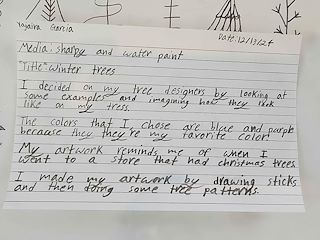 Yajaira Garcia
Date: 12/13/24
Media: sharpy and water paint
"Title" Winter trees
I decided on my tree designers by looking at
some examples and imagining how they look
like on my tress.
The colors that I chose are blue and purple
because they they're my favorite color.
My artwork reminds me of when I
went to a store that had christmas trees.
I made my artwork by drawing sticks
and then doing some tree patterns.